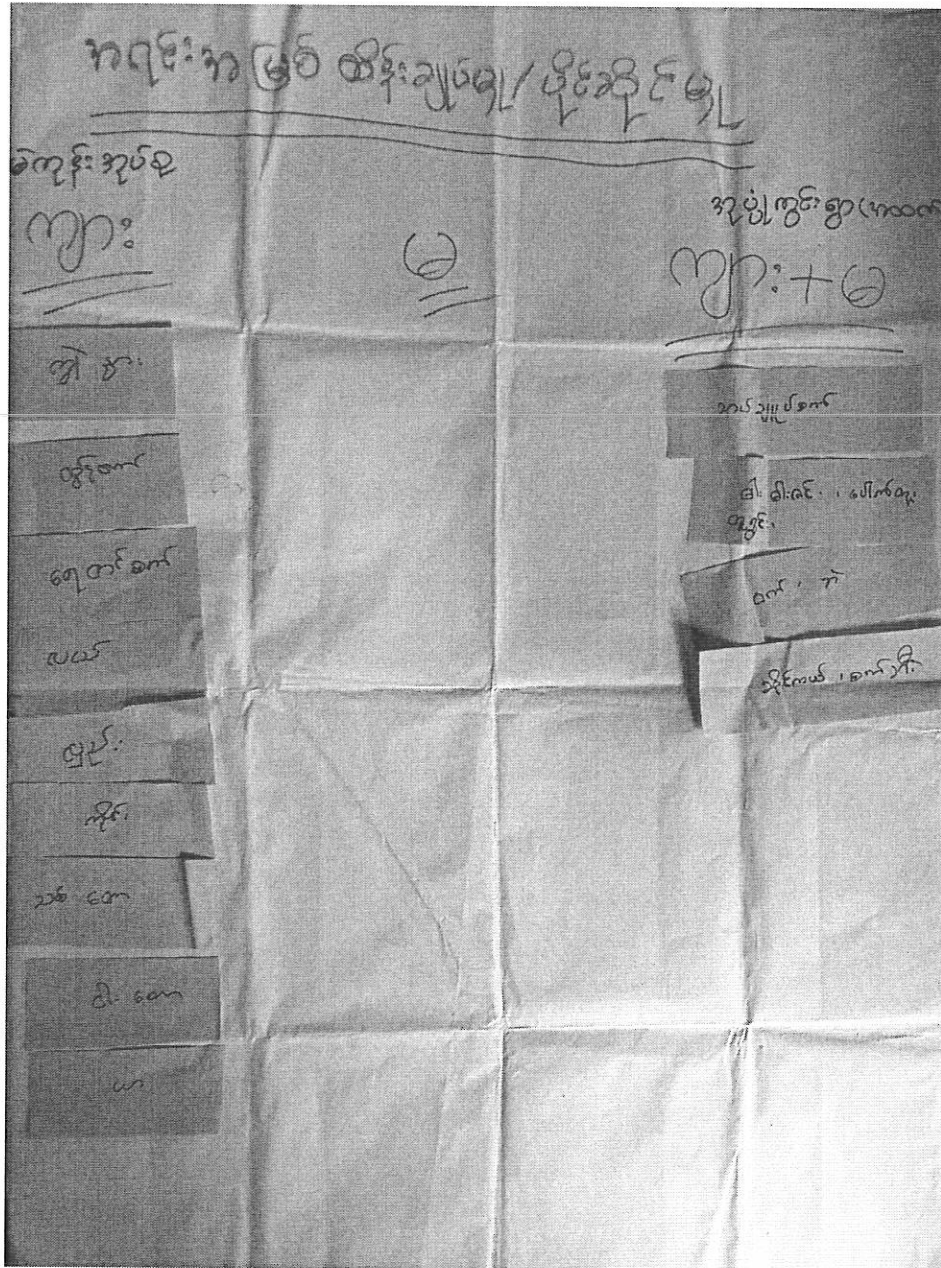 အရင်းအမြစ် ထိန်းချုပ်မှု/ပိုင်ဆိုင်မှု
မဲကုန်းအုပ်စု
အုပ်ပုံကွင်းရွာ(အထက်
ကျား
မ
ကျား + မ
ကျွဲ နွား
ထွန်စက်
ရေတင်စက်
လယ်
လှည်း
ကိုင်း
သစ် တော
ဝါး တော
ယာ
အပ်ချုပ်စက်
ဓါး ခါးဇင်း၊ ပေါက်တူး
တူရွင်း
ဝက်၊ ဘဲ
ဆိုင်ကယ်၊ စက်ဘီး